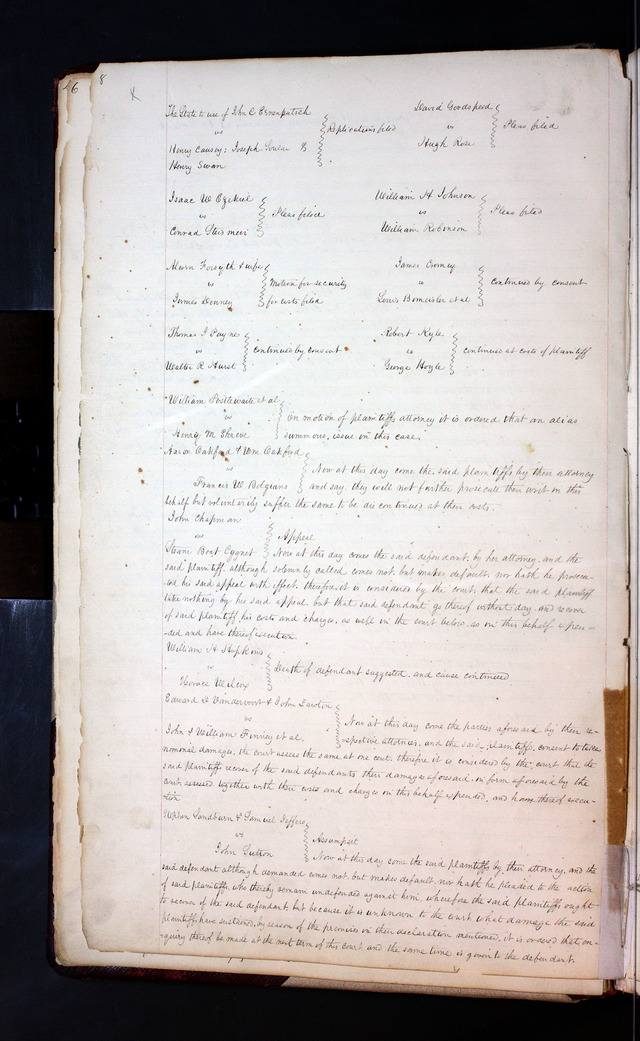 46 8
The State to use of John C
vs Replications filed
Henry Causey; Joseph
Henry Swan
David Goodspeed
vs Pleas filed
Hugh Rose
Isaac W Ezekiel
vs Pleas filed
Conrad
William H Johnson
vs Pleas filed
William Robinson
Forsyth & wife
vs Motion for security
James Denney for costs filed
James Cromey
vs Continued by consent
Louis et al
Thomas J Payne
vs Continued by consent
Walter R Hurst
Robert Kyle
vs Continued at costs of plaintiff
George Hoyle
William Postlewaite et al
vs On motion of plaintiffs attorney it is ordered that an alias
Henry M Shreve summons, issue in this case.
Aaron Oakford & Wm Oakford
vs Now at this day come the said plaintiffs by their attorney
Francis W and say, they will not further prosecute their writ in this
behalf but voluntarily suffer the same to be discontinued at their costs.
John Chapman
vs Appeal
Steam Boat Cygnet Now at this day comes the said defendant, by her attorney, and the
said plaintiff, although solemnly called comes not, but makes default, nor hath he prosecu-
ted his said appeal with effect, therefore it is considered by the court, that the said plaintiff
take nothing by his said appeal, but that said defendant go thereof without day, and recover
of said plaintiff his costs and charges, as well in the court below, as on this behalf expen-
-ded and have thereof execution.
William H Hopkins
vs Death of defendant suggested, and cause continued
Horace Wilcox
Edward D Vandervoort & John
vs Now at this day come the parties aforesaid by their re-
John & William Finney et al. spective attornies, and the said plaintiffs, consent to take
nominal damages, the court assess the same at one cent, therefore it is considered by the court that the
said plaintiffs recover of the said defendants their damages aforesaid in form aforesaid by the
court assessed together with their costs and charges on this behalf expended, and have thereof execu-
-tion
Stephen Sandburn & Samuel
vs Assumpsit
John Sutton Now at this day come the said plaintiffs by their attorney, and the
said defendant although demanded comes not, but makes default, nor hath he pleaded to the action
of said plaintiffs, who thereby remain undefended against him, wherefore the said plaintiffs ought
to recover of the said defendant, but because it is unknown to the court what damage the said
plaintiffs have sustained, by reason of the premises in their declaration mentioned, it is ordered that en-
-quiry thereof be made at the next term of this court, and the same time is given to the defendant.